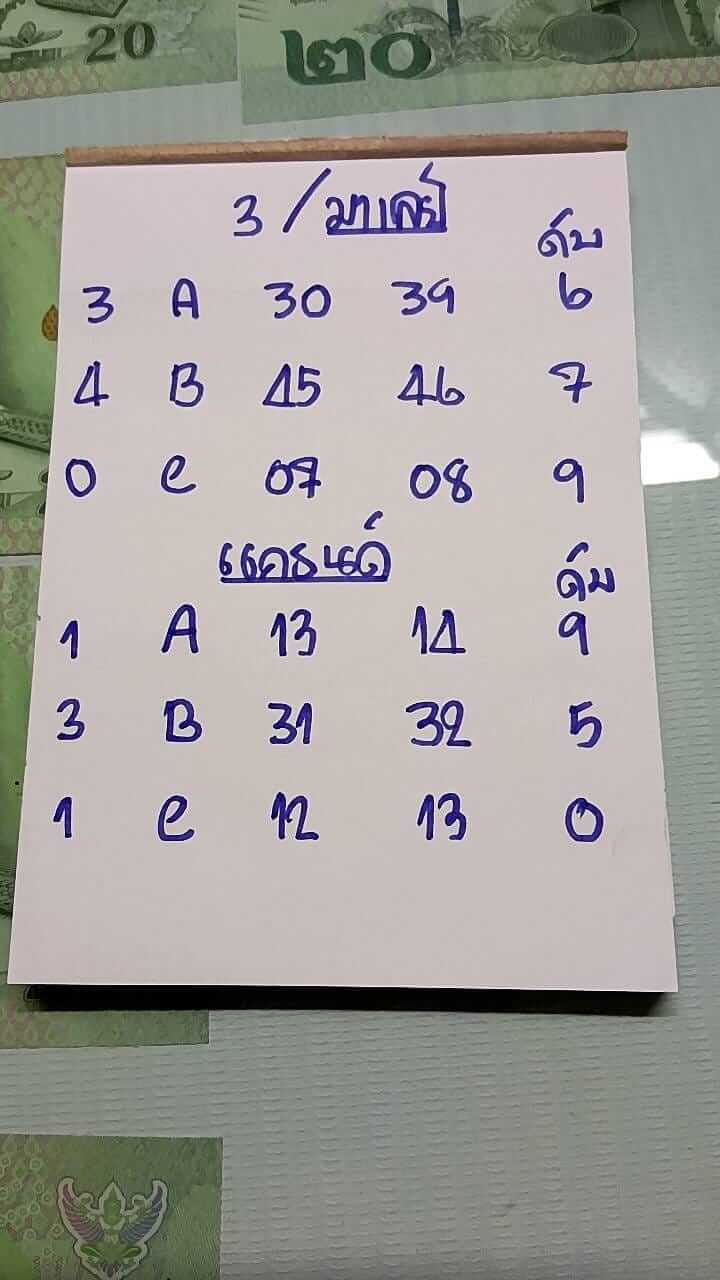 20
๒๐
3 / มาเลย์
ดับ
3 A 30 39 6
4 B 45 46 7
0 C 07 08 9
แครนด์
ดับ
1 A 13 14 9
3 B 31 32 5
1 C 12 13 0